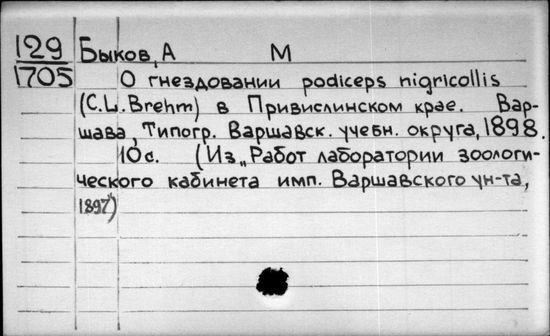 129
1705
Быков, А М
О гнездовании podiceps nigricollis
(C.L. Brehm) в Привислинском крае. Вар-
шава, Типогр. Варшавск. учебн. округа, 1898.
10с. (Из „Работ лаборатории зоологи-
ческого кабинета имп. Варшавского ун-та,
1897)